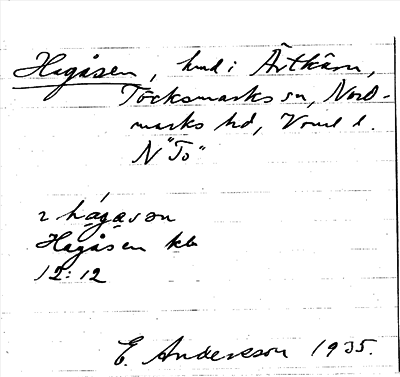 Hagåsen, hmd i Ärtkärn,
Töcksmarks sn, Nord-
marks hd, Vrml l.
N "Tö"
2 hágåsǝn
Hagåsen kb
12:12
E. Andersson 1935.